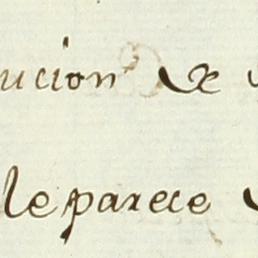 ucion de
le parece